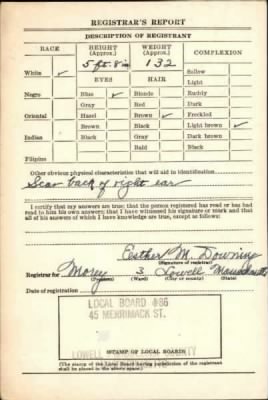 REGISTRAR'S REPORT
DESCRIPTION OF REGISTRANT
RACE HEIGHT (Approx.) WEIGHT (Approx.) COMPLEXION
5 ft. 8 in 132 Sallow
White ✓ EYES HAIR Light
Negro Blue ✓ Blonde Ruddy
Gray Red Dark
Oriental Hazel Brown ✓ Freckled
Brown Black Light brown ✓
Indian Black Gray Dark brown
Bald Black
Filipino
Other obvious physical characteristics that will aid in identification
Scar back of right ear
I certify that my answers are true; that the person registered has read or has had
read to him his own answers; that I have witnessed his signature or mark and that
all of his answers of which I have knowledge are true, except as follows:
Esther M. Downing
(Signature of registrar)
Registrar for Morey 3 Lowell Massachusetts
(Precinct) (Ward) (City or county) (State)
Date of registration
LOCAL BOARD #86
45 MERRIMACK ST.
LOWELL
(STAMP OF LOCAL BOARD)
(The stamp of the Local Board having jurisdiction of the registrant
shall be placed in the above space.)